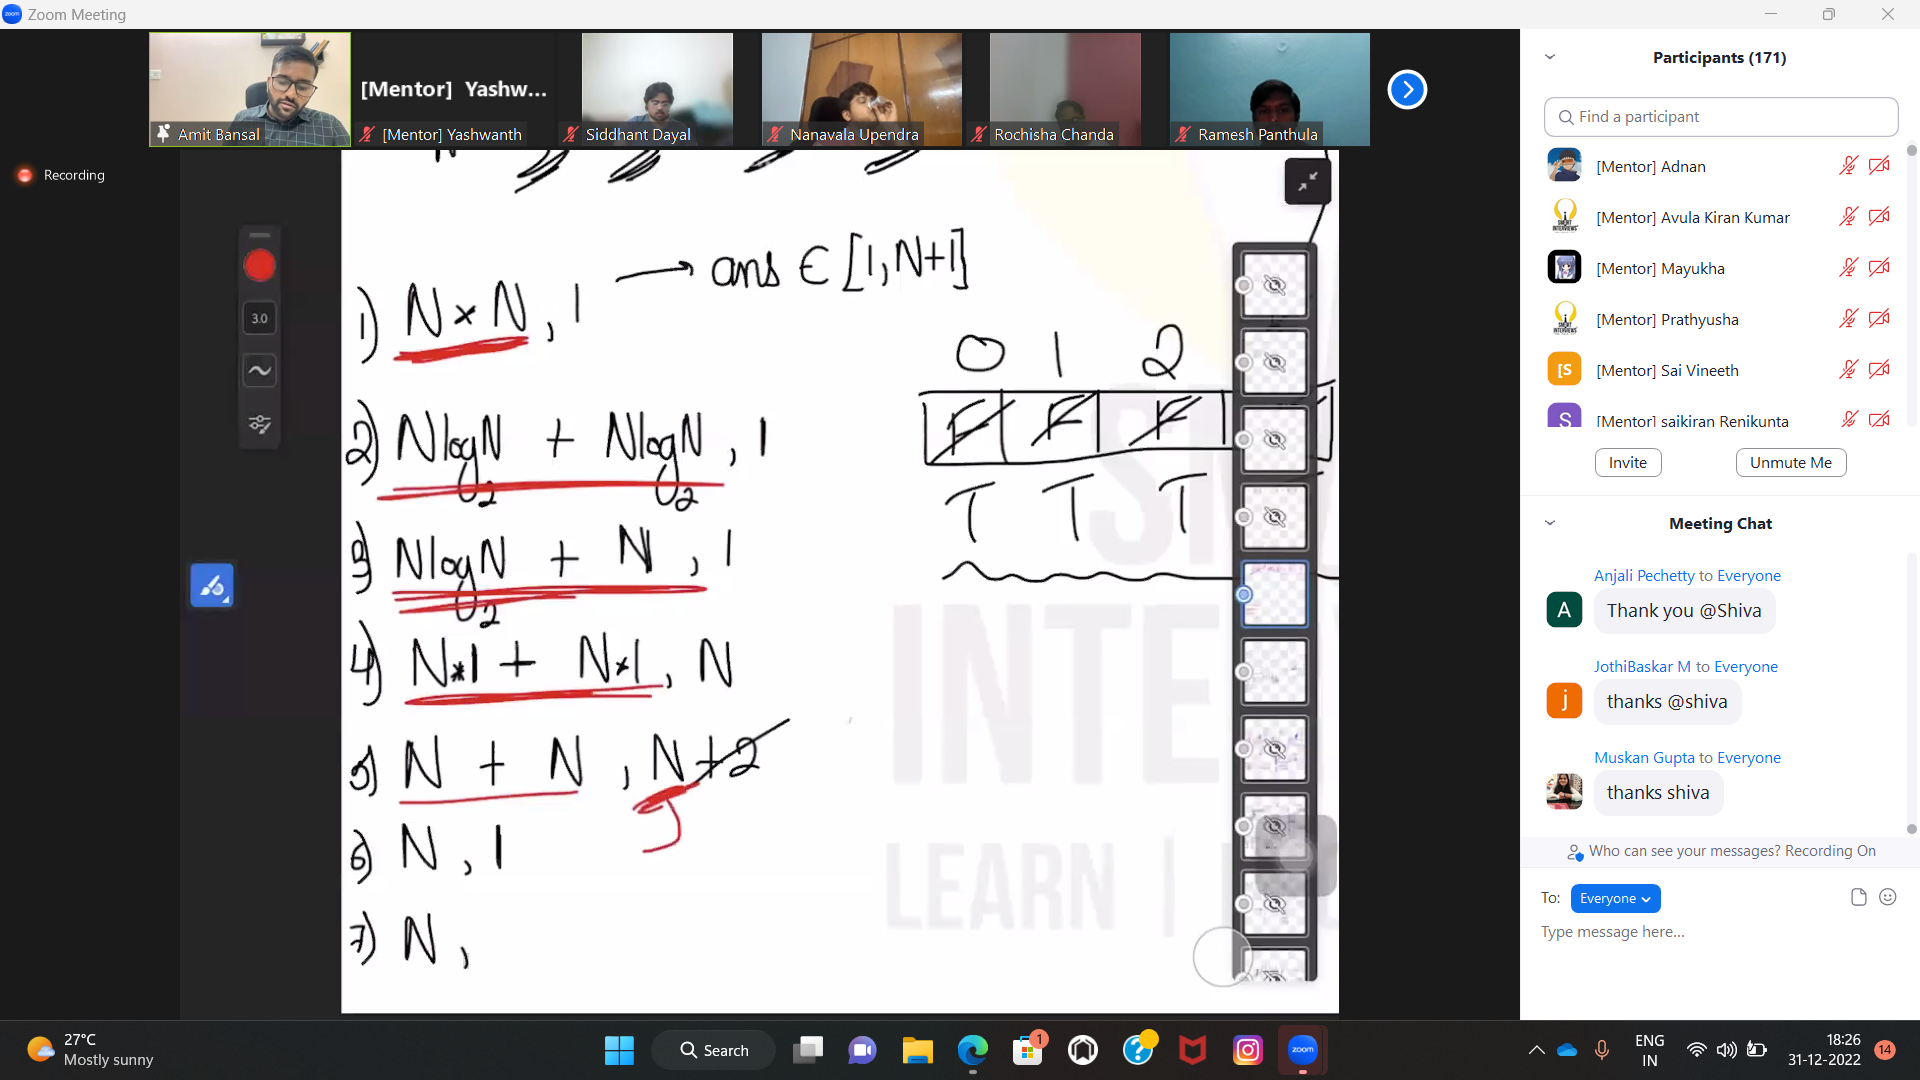 Zoom Meeting
Amit Bansal
[Mentor] Yashw...
[Mentor] Yashwanth
Siddhant Dayal
Nanavala Upendra
Rochisha Chanda
Ramesh Panthula
Recording
3.0
→ ans ∈ [1,N+1]
1) N × N , 1
2) NlogN + NlogN , 1
2 2
3) NlogN + N , 1
2
4) N*1 + N*1 , N
5) N + N , N+2
6) N , 1
7) N ,
0 1 2
F F F
T T T
INTE
LEARN |
Participants (171)
Find a participant
[Mentor] Adnan
[Mentor] Avula Kiran Kumar
[Mentor] Mayukha
[Mentor] Prathyusha
[S
[Mentor] Sai Vineeth
S
[Mentor] saikiran Renikunta
Invite
Unmute Me
Meeting Chat
Anjali Pechetty to Everyone
A
Thank you @Shiva
JothiBaskar M to Everyone
j
thanks @shiva
Muskan Gupta to Everyone
thanks shiva
Who can see your messages? Recording On
To: Everyone
Type message here...
27°C
Mostly sunny
Search
1
zoom
ENG
IN
18:26
31-12-2022
14